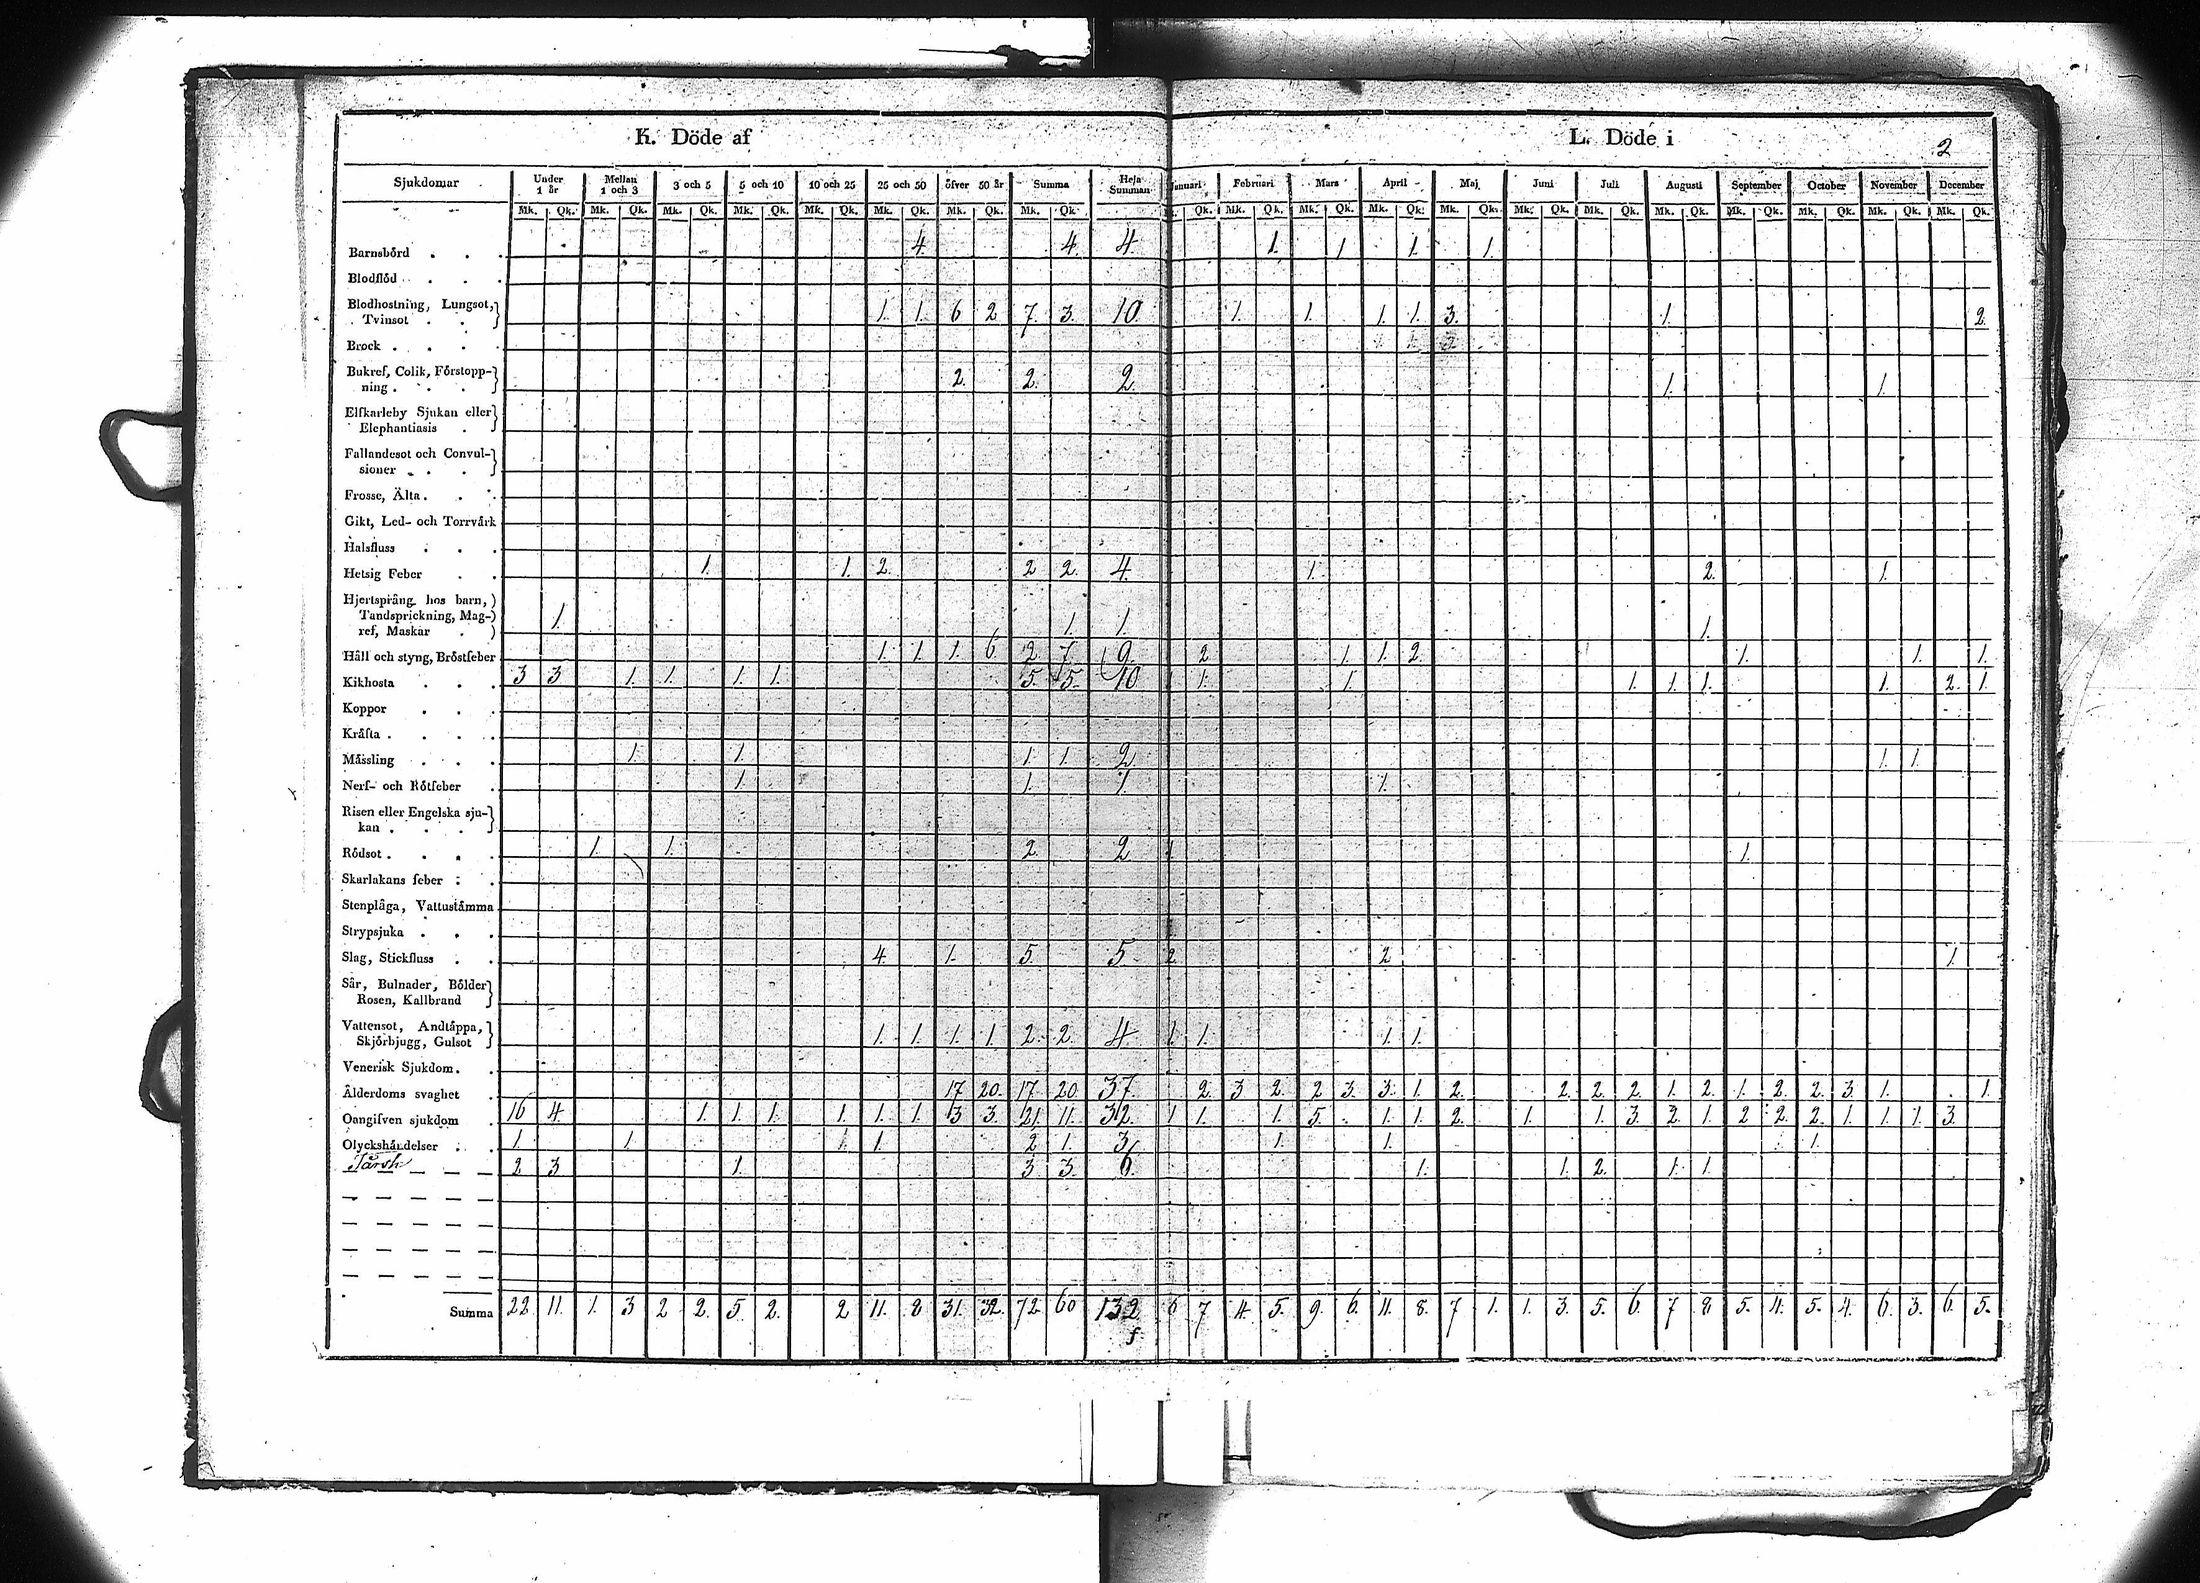 K. Döde af L. Döde i 2
Sjukdomar Under 1 år Mellan 1 och 3 3 och 5 5 och 10 10 och 25 25 och 50 öfver 50 år Summa Hela Summan Januari Februari Mars April Maj Juni Juli Augusti September October November December
Mk. Qk. Mk. Qk. Mk. Qk. Mk. Qk. Mk. Qk. Mk. Qk. Mk. Qk. Mk. Qk. Qk. Mk. Qk. Mk. Qk. Mk. Qk. Mk. Qk. Mk. Qk. Mk. Qk. Mk. Qk. Mk. Qk. Mk. Qk. Mk. Qk. Mk. Qk.
Barnsbörd . . . 4 4. 4 1. 1 1. 1.
Blodflöd . . .
Blodhostning, Lungsot, Tvinsot . . 1. 1. 6 2 7. 3. 10. 1. 1. 1. 1. 3. 1. 2.
Brock . . . .
Bukref, Colik, Förstoppning . . . 2. 2. 2. 1. 1.
Elfkarleby Sjukan eller Elephantiasis .
Fallandesot och Convulsioner . . .
Frosse, Älta . . .
Gikt, Led- och Torrvärk
Halsfluss . . .
Hetsig Feber . . 1. 1. 2. 2 2. 4. 1. 2. 1.
Hjertsprång hos barn, Tandsprickning, Magref, Maskar . 1. 1. 1. 1.
Håll och styng, Bröstfeber 1. 1. 1. 6 2. 7. 9. 2 1 1. 2. 1. 1. 1.
Kikhosta . . . 3 3 1. 1. 1. 1. 5. 5. 10 1 1. 1. 1. 1. 1. 1. 2. 1.
Koppor . . .
Kräfta . . . .
Mässling . . . 1. 1. 1. 1. 2 1. 1.
Nerf- och Rötfeber . 1. 1. 1. 1.
Risen eller Engelska sjukan . . .
Rödsot . . . . 1. 1. 2. 2 1. 1.
Skarlakans feber . .
Stenplåga, Vattustämma
Strypsjuka . . .
Slag, Stickfluss . . 4. 1. 5. 5. 2. 2 1.
Sår, Bulnader, Bölder Rosen, Kallbrand
Vattensot, Andtäppa, Skjörbjugg, Gulsot 1. 1. 1. 1. 2. 2. 4 1. 1. 1. 1.
Venerisk Sjukdom . .
Ålderdoms svaghet . 17 20. 17. 20. 37 2. 3 2. 2 3. 3. 1. 2. 2. 2. 2. 1. 2. 1. 2. 2. 3. 1. 1.
Oangifven sjukdom . 16 4. 1. 1. 1. 1. 1. 1. 3 3. 21. 11. 32. 1 1. 1. 5. 1. 1. 2. 1. 1. 3. 2. 1. 2 2. 2. 1. 1. 1. 3.
Olyckshändelser . . 1. 1. 1. 1. 2 1. 3 1. 1. 1.
Tårsk 2 3 1. 3 3. 6. 1. 1. 2. 1. 1.
Summa 22 11. 1. 3 2 2. 5 2. 2 11. 8 31. 32. 72. 60 132 6 7. 4. 5. 9. 6. 11. 8. 7 1. 1. 3. 5. 6. 7 8 5. 4. 5. 4. 6. 3. 6. 5.